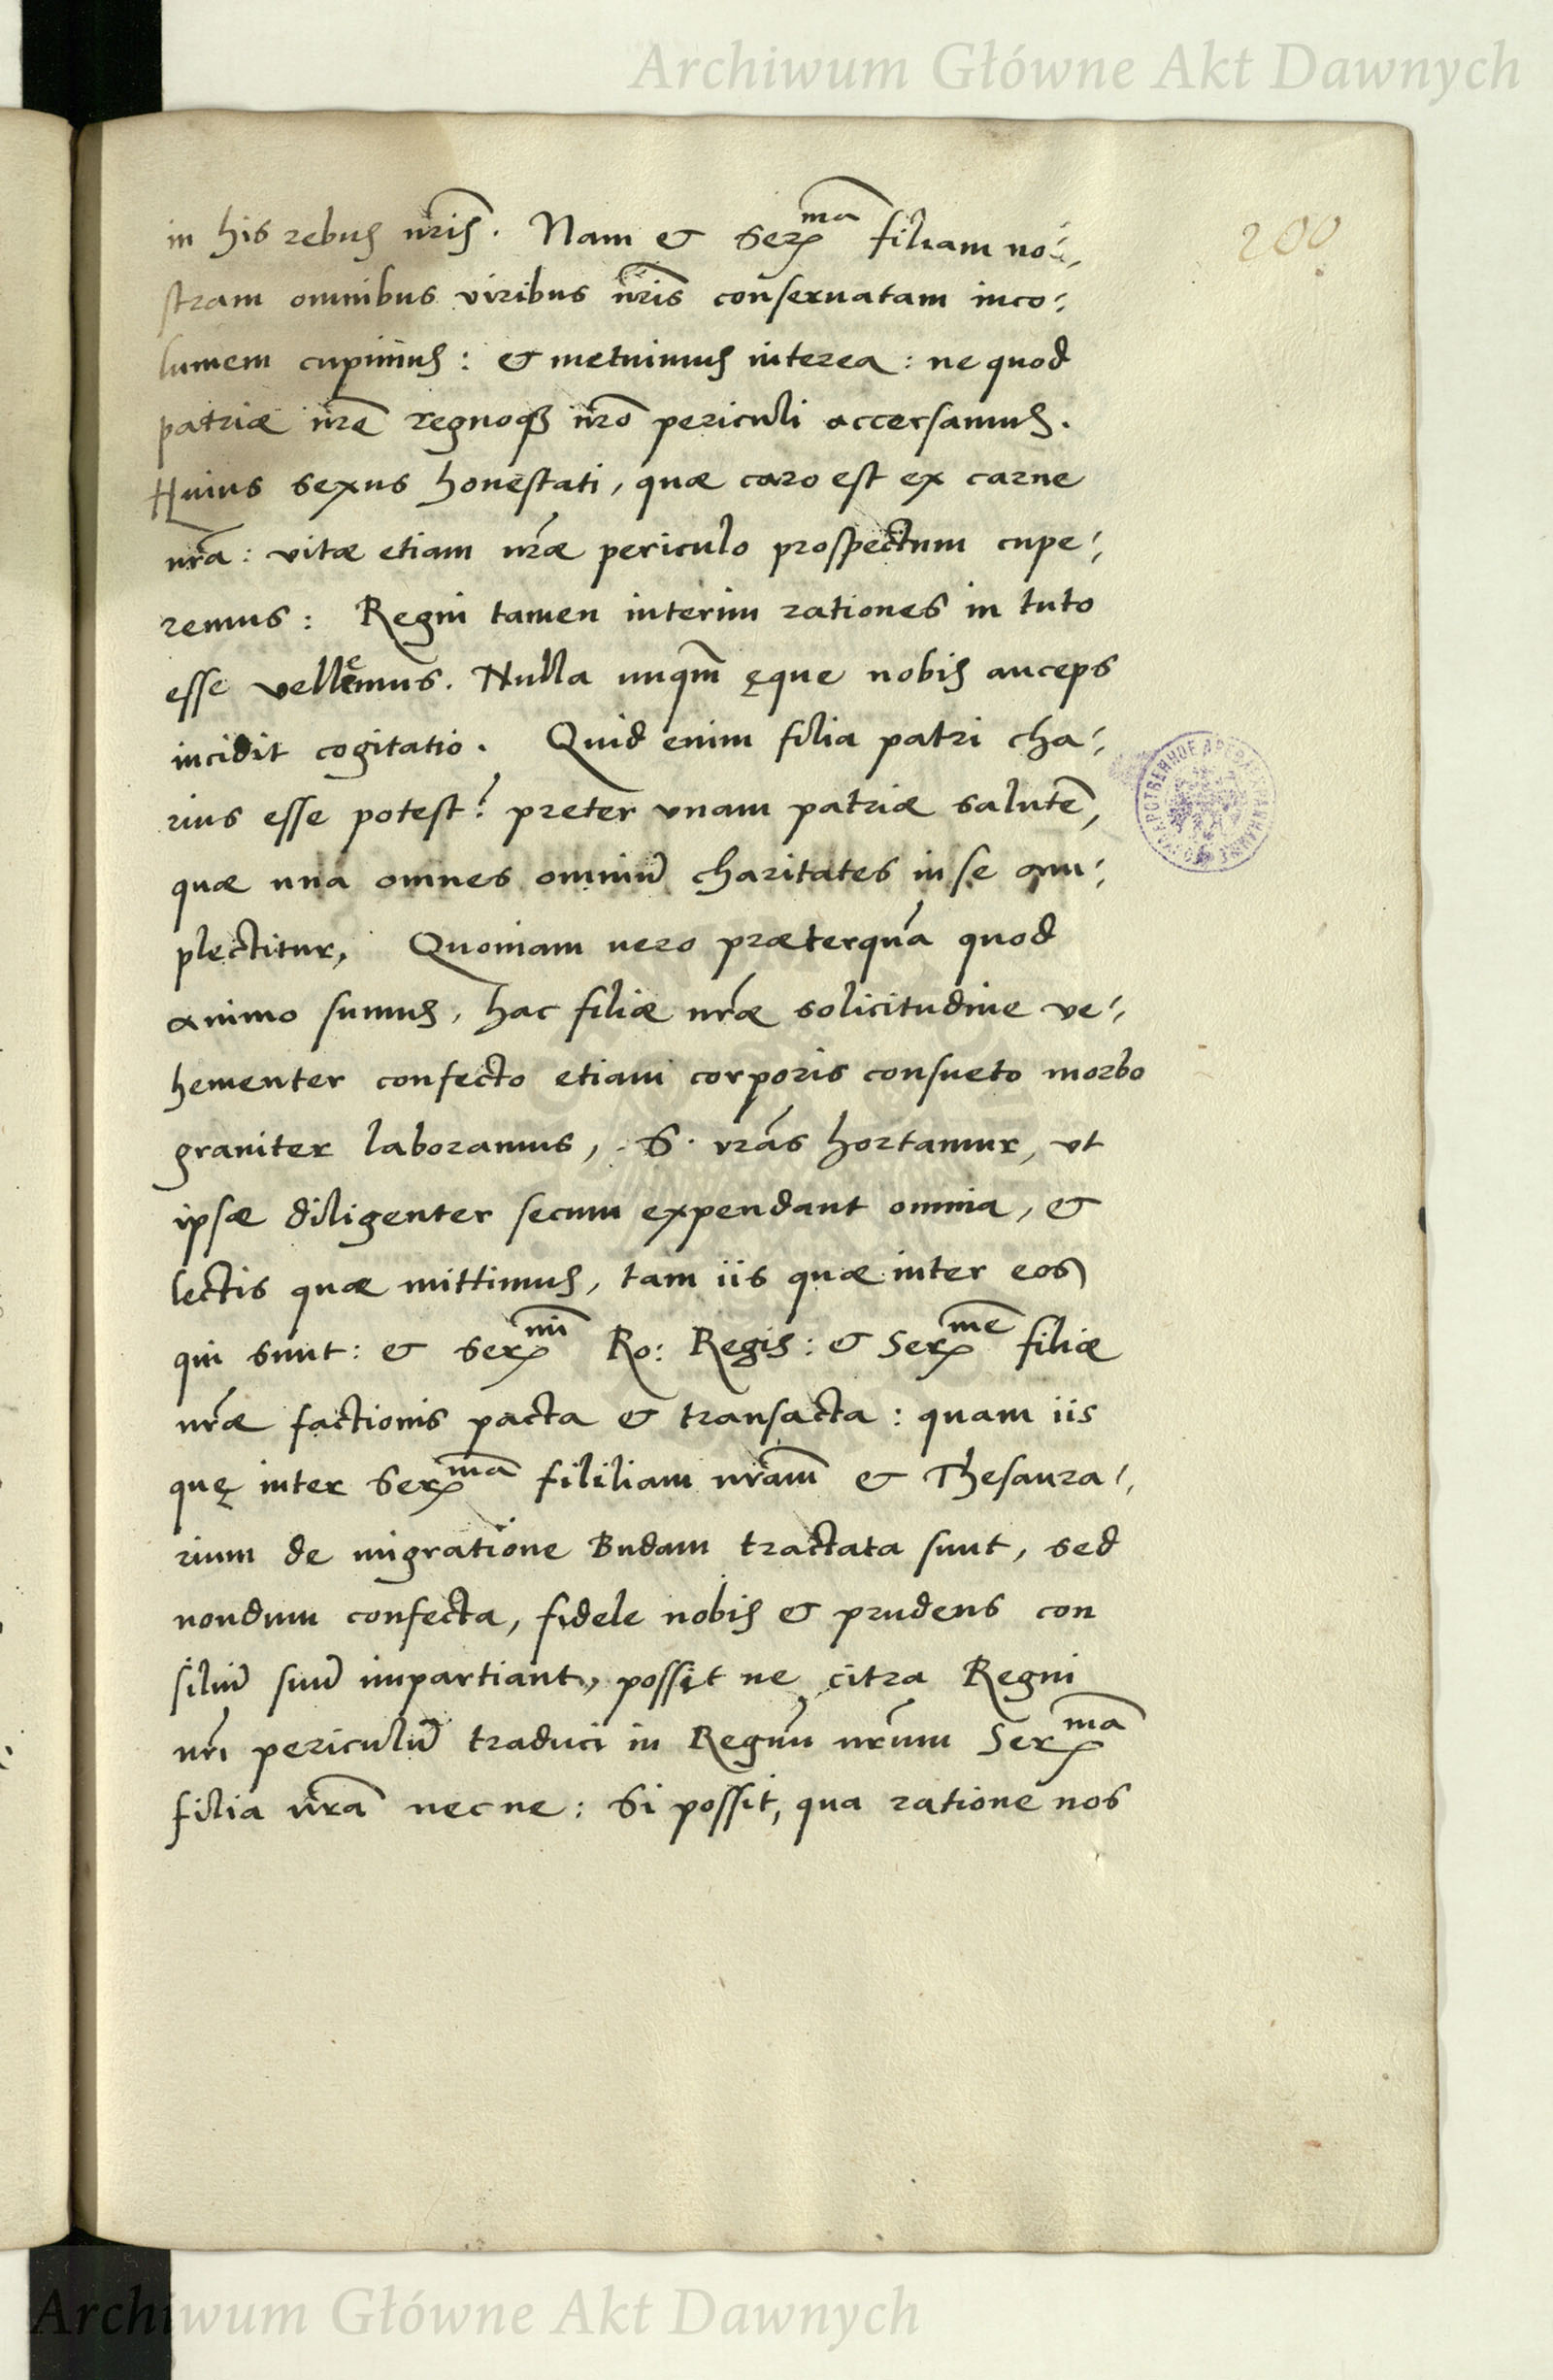 Archiwum Główne Akt Dawnych
200
in his rebus nr̃is. Nam & Serᵐᵃ filiam no⸗
stram omnibus viribus nr̃is conseruatam inco⸗
lumem cupimus: & metuimus interea: ne quod
patriæ nrẽ regnoq₃ nrõ periculi accersamus.
Huius sexus honestati, quæ caro est ex carne
nrã: vitæ etiam nrǽ periculo prospectum cupe⸗
remus: Regni tamen interim rationes in tuto
esse vellemus. Nulla unqm̃ ęque nobis anceps
incidit cogitatio. Quid enim filia patri cha⸗
rius esse potest? preter vnam patriæ salutẽ,
quæ una omnes omniũ charitates in se am⸗
plectitur, Quoniam uero præterquã quod
animo sumus, hac filiæ nrǽ solicitudine ve⸗
hementer confecto etiam corporis consueto morbo
grauiter laboramus, S. vrãs hortamur, vt
ipsæ diligenter secum expendant omnia, &
lectis quæ mittimus, tam iis quæ inter eos
qui sunt: & Serᵐⁱ Ro: Regis: & Serᵐᵉ filiæ
nrǽ factionis pacta & transacta: quam iis
quę inter Serᵐᵃ fililiam nrãm & Thesaura⸗
rium de migratione Budam tractata sunt, sed
nondum confecta, fidele nobis & prudens con
siliũ suũ impartiant, possit ne citra Regni
nrĩ periculũ traduci in Regnũ nrũm Serᵐᵃ
filia nrã necne: Si possit, qua ratione nos
Archiwum Główne Akt Dawnych